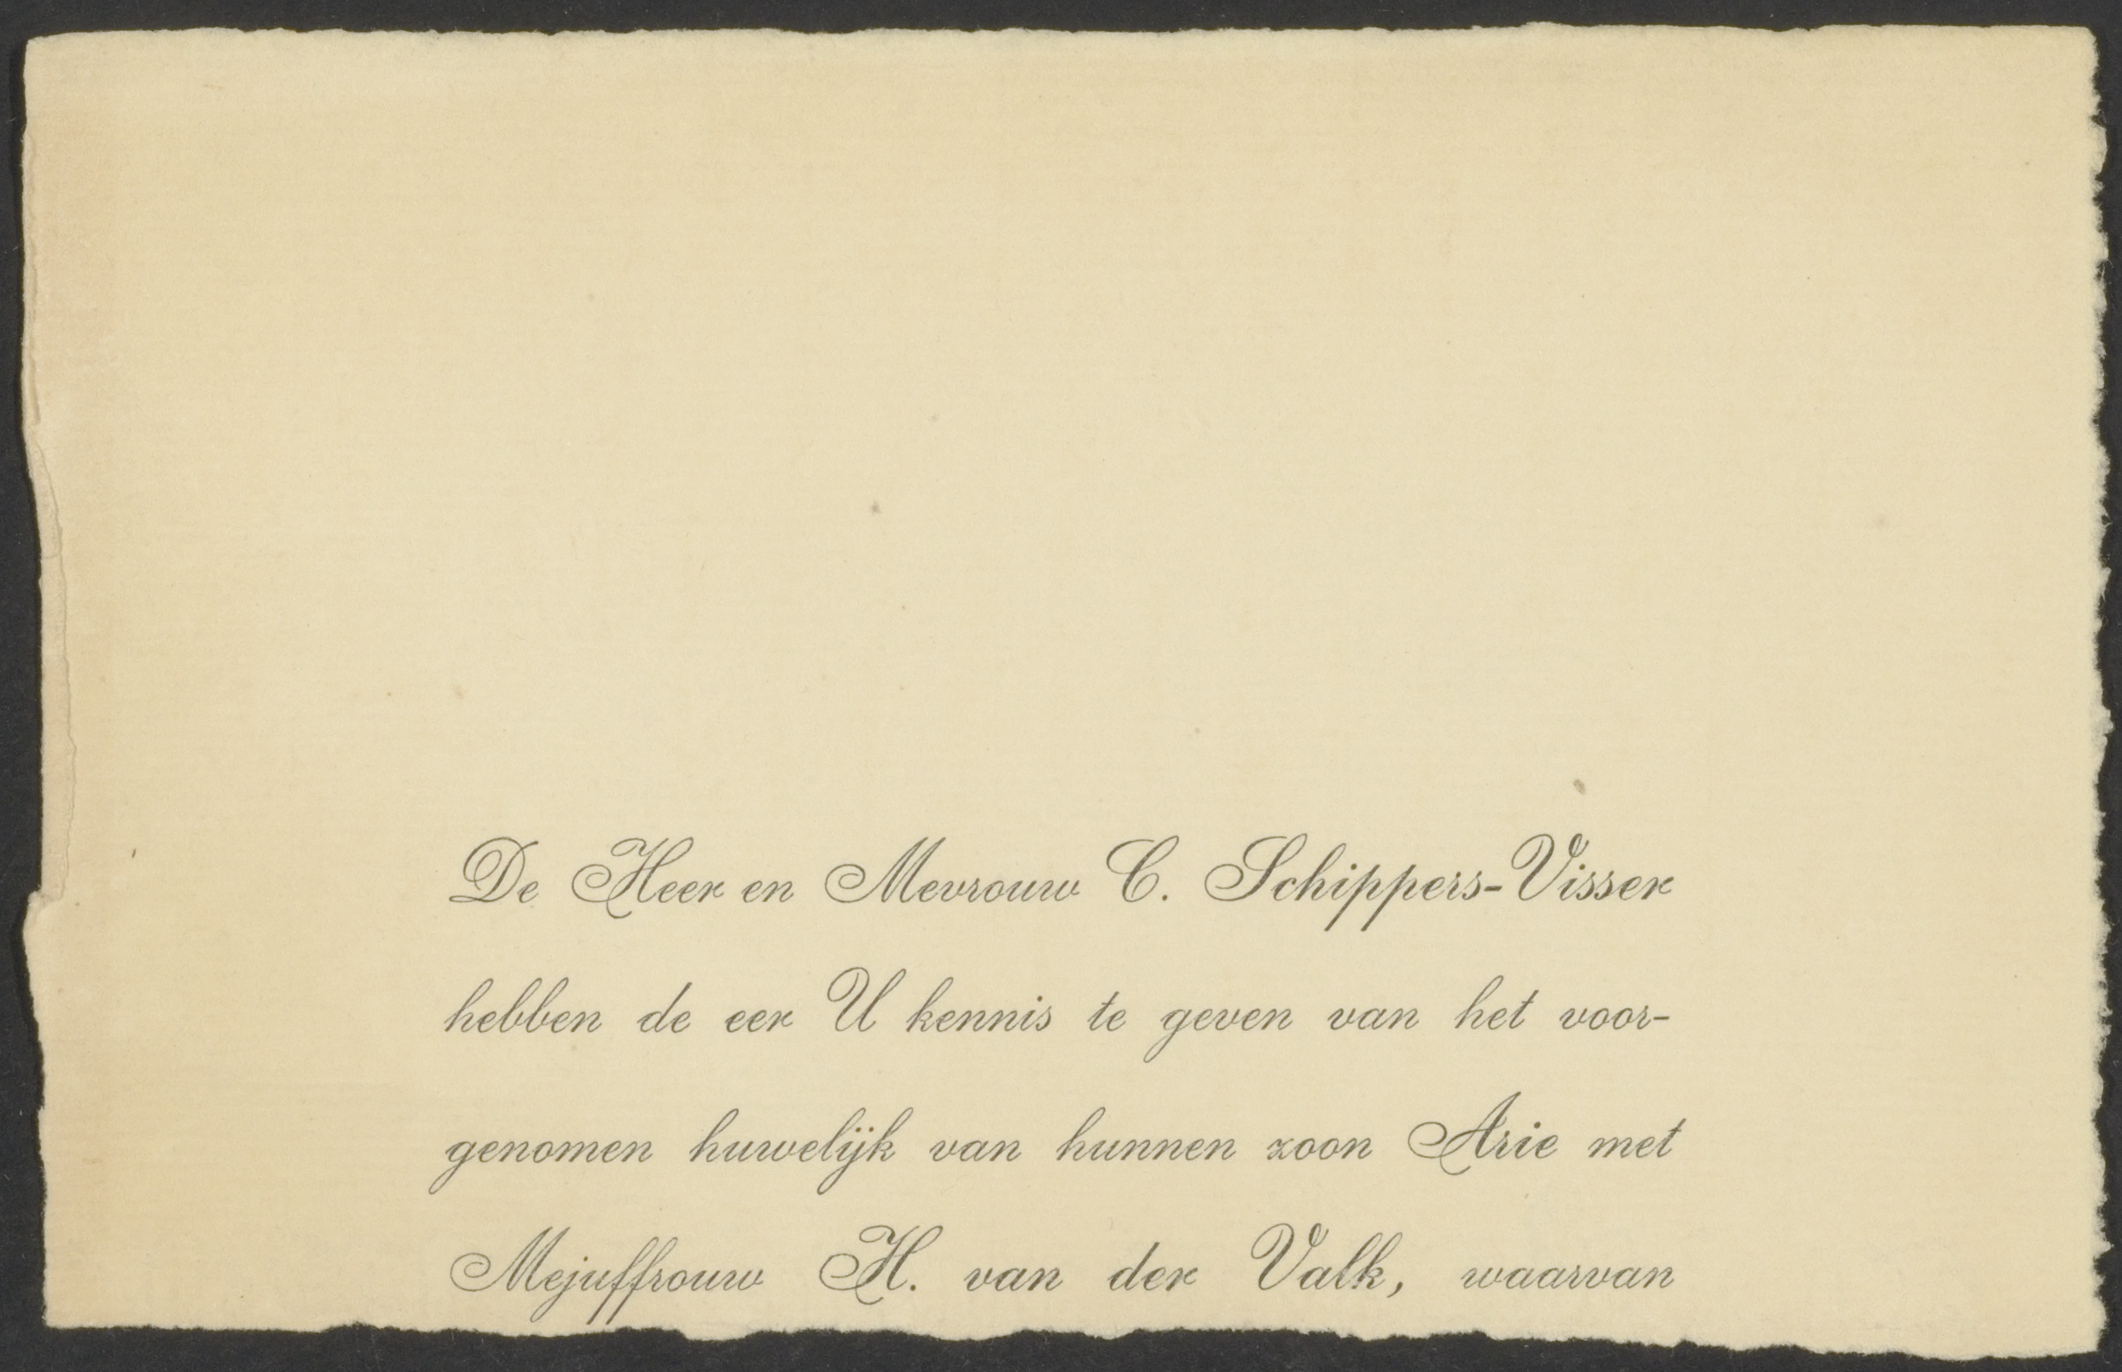 De Heer en Mevrouw C. Schippers-Visser
hebben de eer U kennis te geven van het voor-
genomen huwelijk van hunnen zoon Arie met
Mejuffrouw H. van der Valk, waarvan